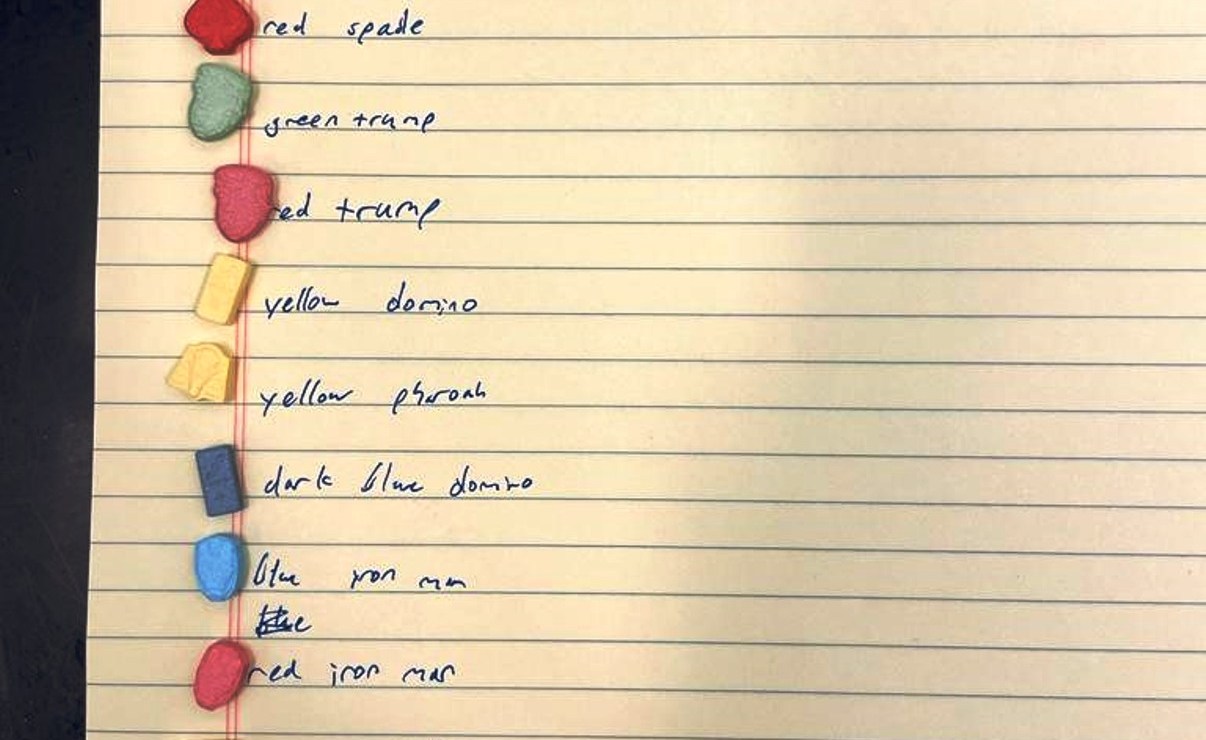 red spade
green trump
red trump
yellow domino
yellow pharoah
dark blue domino
blue iron man
blue
red iron man